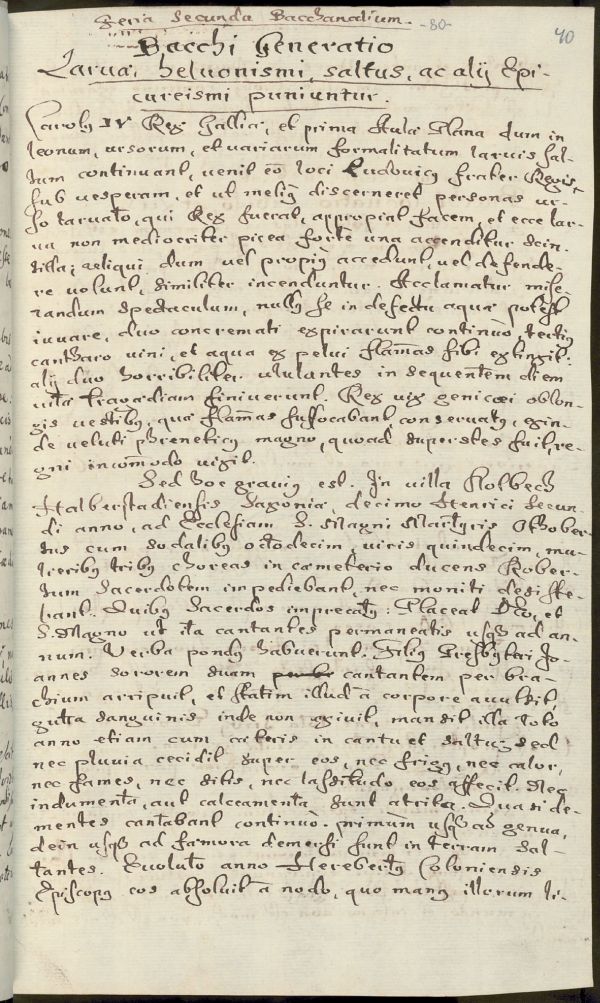 Feria Secunda Bacchanalium. -80-
40
Bacchi Generatio
Larvæ, heluonismi, saltus, ac alij Epi-
cureismi puniuntur.
Carolus IV Rex Galliæ, et prima Aula Plana dum in
leonum, ursorum, et variarum formalitatum larvis sal-
tum continuant, venit eō loci Ludovicus frater Regis
sub vesperam, et ut melius discerneret personas ur-
so larvato, qui Rex fuerat, appropiat facem, et ecce lar-
va non mediocriter picea forte una accenditur scin-
tilla; reliqui dum vel propius accedunt, vel defende-
re volunt, similiter incenduntur. Acclamatur mise-
randum spectaculum, nullus se in defectu aquæ potest
iuvare, duo concremati expirarunt continuò, tertius
cantharo vini, et aqua ex pelui flam̄as sibi extingit:
alij duo horribiliter ululantes in sequentem diem
vitæ tragædiam finiverunt. Rex vix genicæi oblon-
gis vestibus, quæ flam̄as suffocabant, conservatus, exin-
de veluti phreneticus magno, quoad superstes fuit, re-
gni incom̄odo vixit.
Sed hoc gravius est. In villa Kolbech
Halberstadiensis Saxoniæ, decimo Henrici Secun-
di anno, ad Ecclesiam S. Magni Martyris Othober-
tus cum sodalibus octodecim, viris quindecim, mu-
lieribus tribus choreas in cæmeterio ducens Rober-
tum Sacerdotem impediebant, nec moniti desiste-
bant. Quibus Sacerdos imprecatus: Placeat Deo, et
S. Magno ut ita cantantes permaneatis usque ad an-
num. Verba pondus habuerunt. Filius Presbyteri Jo-
annes sororem suam cantantem per bra-
chium arripuit, et statim illud à corpore avulsit,
gutta sanguinis inde non exivit, mansit illa toto
anno etiam cum cæteris in cantu et saltu; sed
nec pluvia cecidit super eos, nec frigus, nec calor,
nec fames, nec sitis, nec lassitudo eos affecit. Nec
indumenta, aut calceamenta sunt attrita. Quasi de-
mentes cantabant continuò. primùm usque ad genua,
dein usque ad famora demersi sunt in terram sal-
tantes. Evoluto anno Herebertus Coloniensis
Episcopus eos absolvit à nodo, quo manus illorum li-